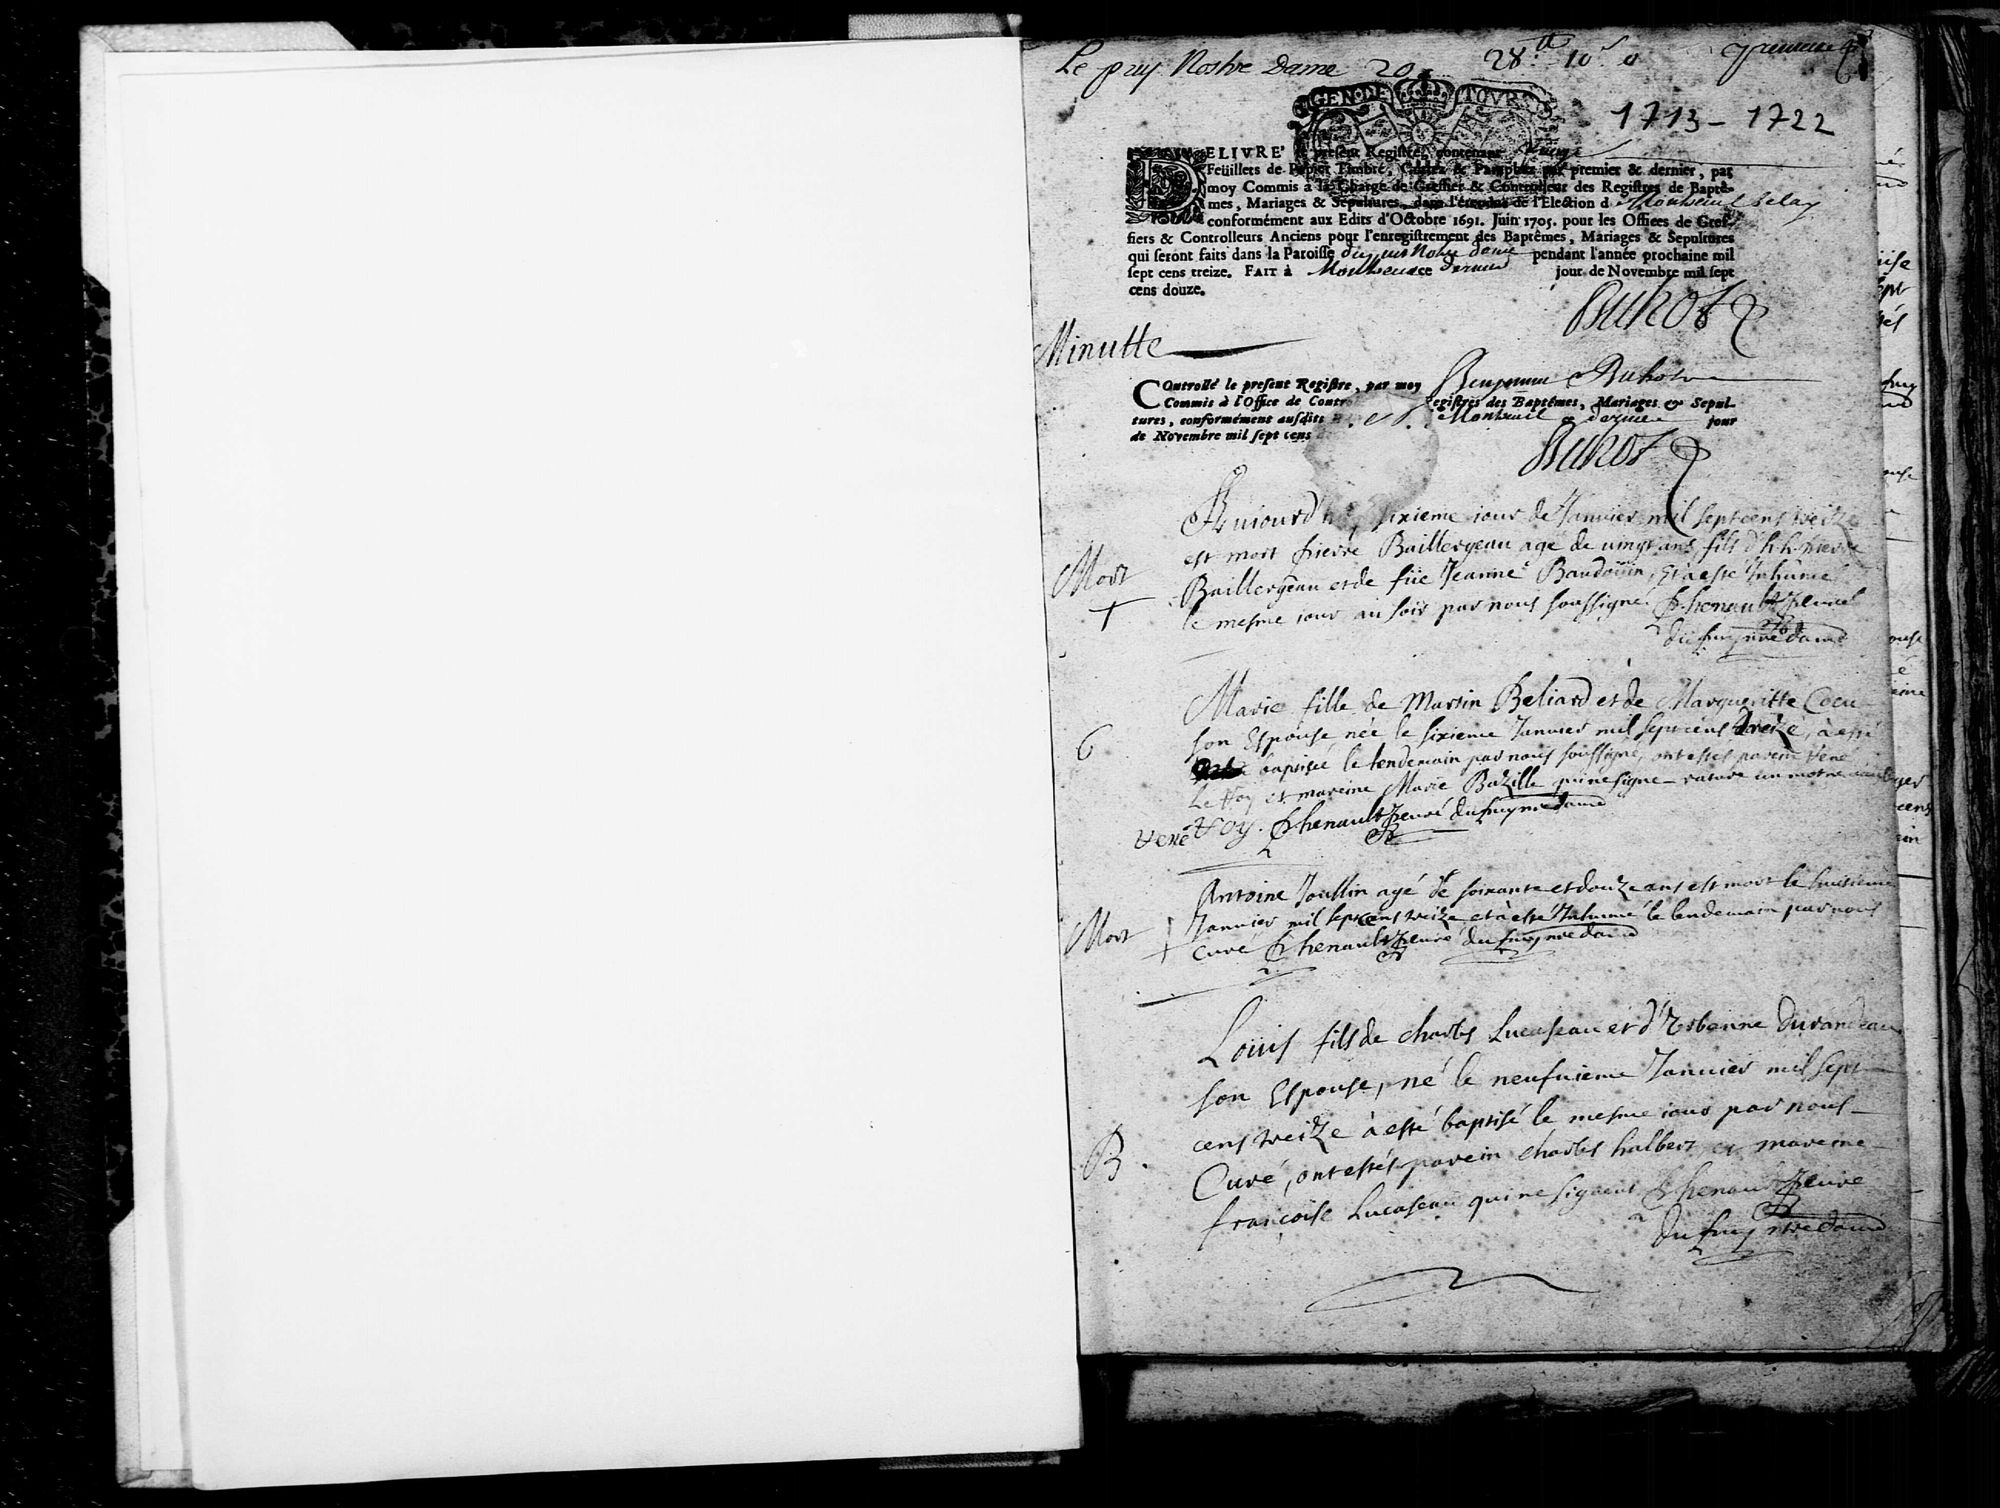 Le puy Nostre Dame 20 28.tt 10.s
GEN. DE TOVRS
1713 - 1722
DELIVRÉ le present Registre, contenant vingt
Feüillets de Papier Timbré, Cottez & Paraphez par premier & dernier, par
moy Commis à la Charge de Greffier & Controlleur des Registres de Baptê-
mes, Mariages & Sepultures, dans l'étenduë de l'Election d Montreuil belay
conformément aux Edits d'Octobre 1691. Juin 1705. pour les Offices de Gref-
fiers & Controlleurs Anciens pour l'enregistrement des Baptêmes, Mariages & Sepultures
qui seront faits dans la Paroisse du puy Notre dame pendant l'année prochaine mil
sept cens treize. FAIT à Montreuil ce dernier jour de Novembre mil sept
cens douze.
Buhot
Minutte
COntrollé le present Registre, par moy Benjamin Buhot
Commis à l'Office de Contr egistres des Baptêmes, Mariages & Sepul-
tures, conformément ausdits Montreuil ce dernier jour
de Novembre mil sept cens
Buhot
Aujourd'huy sixieme jour de Janvier mil sept cens treize
est mort pierre Baillergeau agé de vingt ans fils d'h.h. pierre
Mort
Baillergeau et de füe Jeanne Baudoüin, Et à esté Inhumé
le mesme iour au soir par nous soussigné. P. henault p. curé
du puy nre dame
Marie fille de Martin Beliard et de Margueritte Cocu
son Espouse née le sixieme Janvier mil sept cens treize, à esté
6
baptisée le lendemain par nous soussigné, ont estés parein René
Le Roy et mareine Marie Bazille qui ne signe - rature un mot
René Roy. P. henault p. curé du puy nre dame
Antoine Joullin agé de soixante et douze ans est mort le huitieme
Mort
Janvier mil sept cens treize et à esté Inhumé le lendemain par nous
curé P. henault p. curé du puy nre dame
Loüis fils de charles Lucaseau et d'Urbenne Durandeau
son Espouse, né le neufuieme Janvier mil sept
cens treize à esté baptisé le mesme iour par nous
B.
Curé, ont estés parein charles halbert et mareine
francoise Lucaseau qui ne signent P. henault p. curé
du puy nre dame